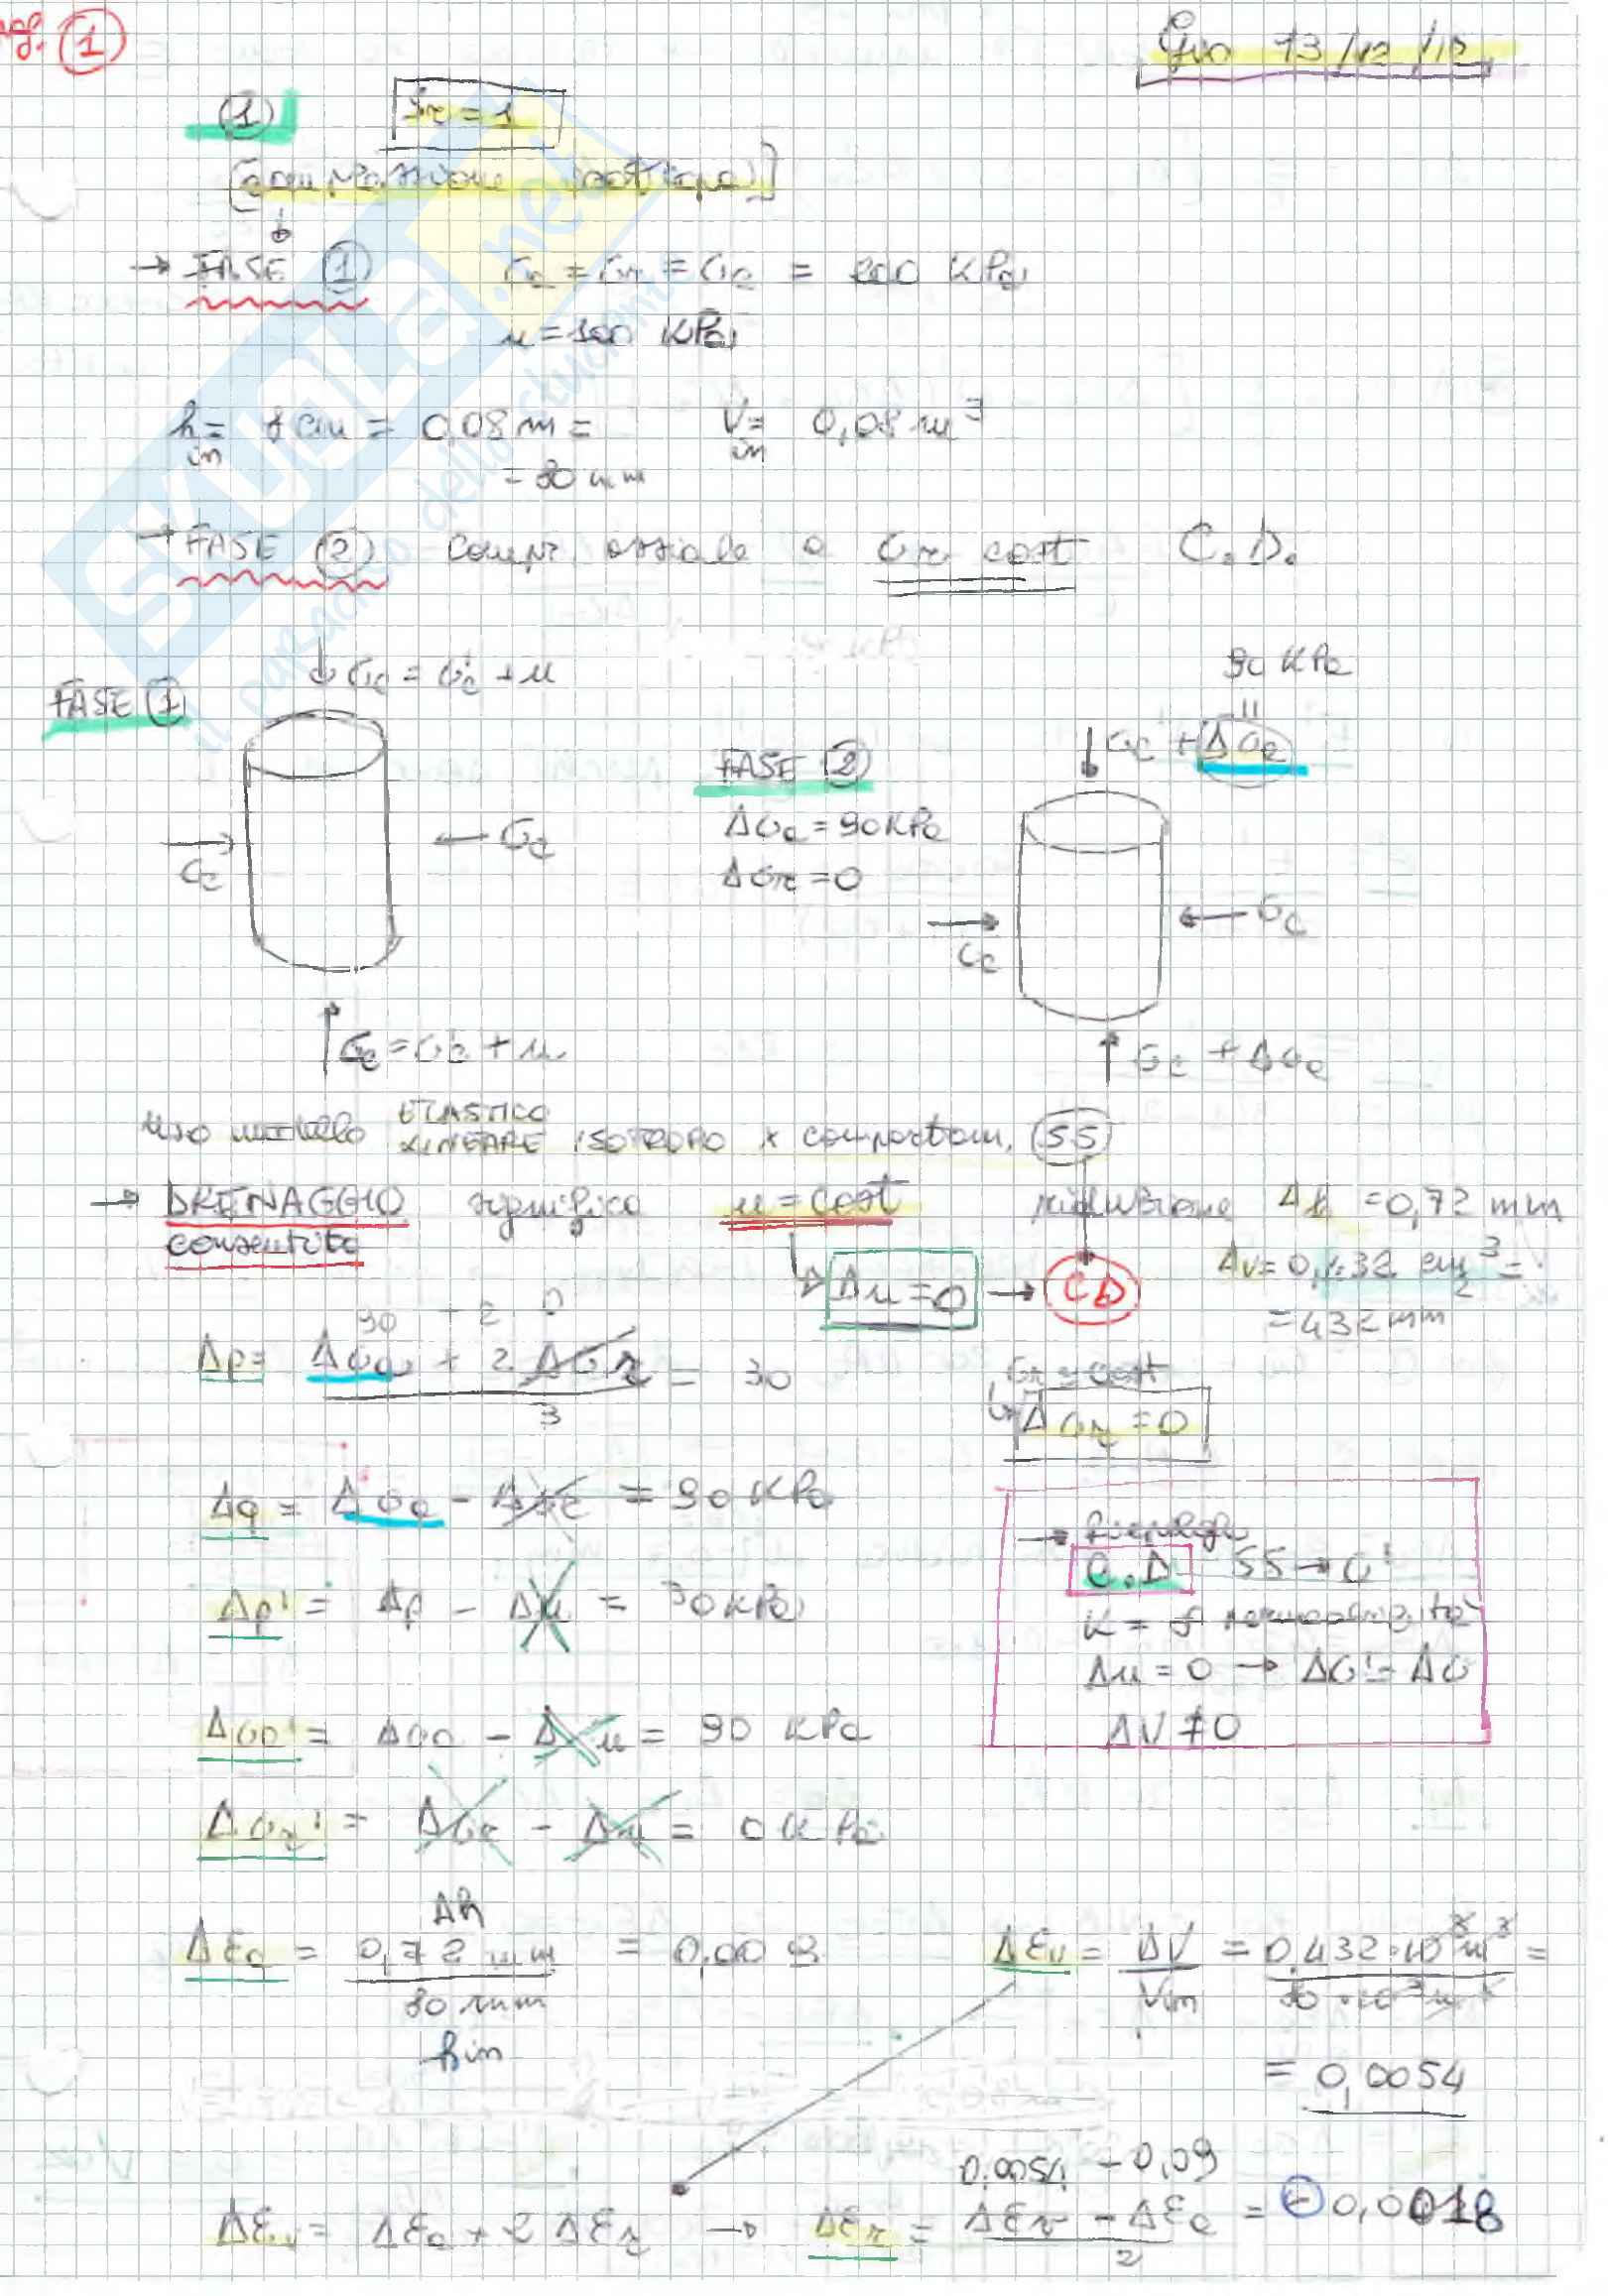 pag. 1
Gio 13/12/12
1 Sr = 1
[compressione isotropa]
→ FASE 1 σa = σr = σc = 200 KPa
u = 100 KPa
h in = 8 cm = 0,08 m = V in = 0,08 m³
= 80 mm
→ FASE 2 compr. assiale a σr cost C.D.
FASE 1
↓ σc = σ'c + u
σc
← σc
↑ σc = σ'c + u
FASE 2
Δσa = 90 KPa
Δσr = 0
90 KPa
||
↓ σc + Δσa
σc
← σc
↑ σc + Δσa
uso modello ELASTICO LINEARE ISOTROPO x comportam. SS
→ DRENAGGIO consentito significa u = cost riduzione Δh = 0,72 mm
Δu = 0 → CD
ΔV = 0,432 cm³ =
= 432 mm
90 + 2 0
Δp = Δσa + 2 Δσr = 30
3
σr = cost
Δσr = 0
Δq = Δσa - Δσr = 90 KPa
Δp' = Δp - Δu = 30 KPa
Δσa' = Δσa - Δu = 90 KPa
Δσr' = Δσr - Δu = 0 KPa
→ drenaggio
C.D SS → σ'
K = f permeabilità
Δu = 0 → Δσ' = Δσ
ΔV ≠ 0
Δh
Δεa = 0,72 mm = 0,009
80 mm
hin
Δεv = ΔV = 0,432·10
Vin
= 0,0054
0,0054 - 0,09
Δεv = Δεa + 2 Δεr → Δεr = Δεv - Δεa = - 0,0018
2